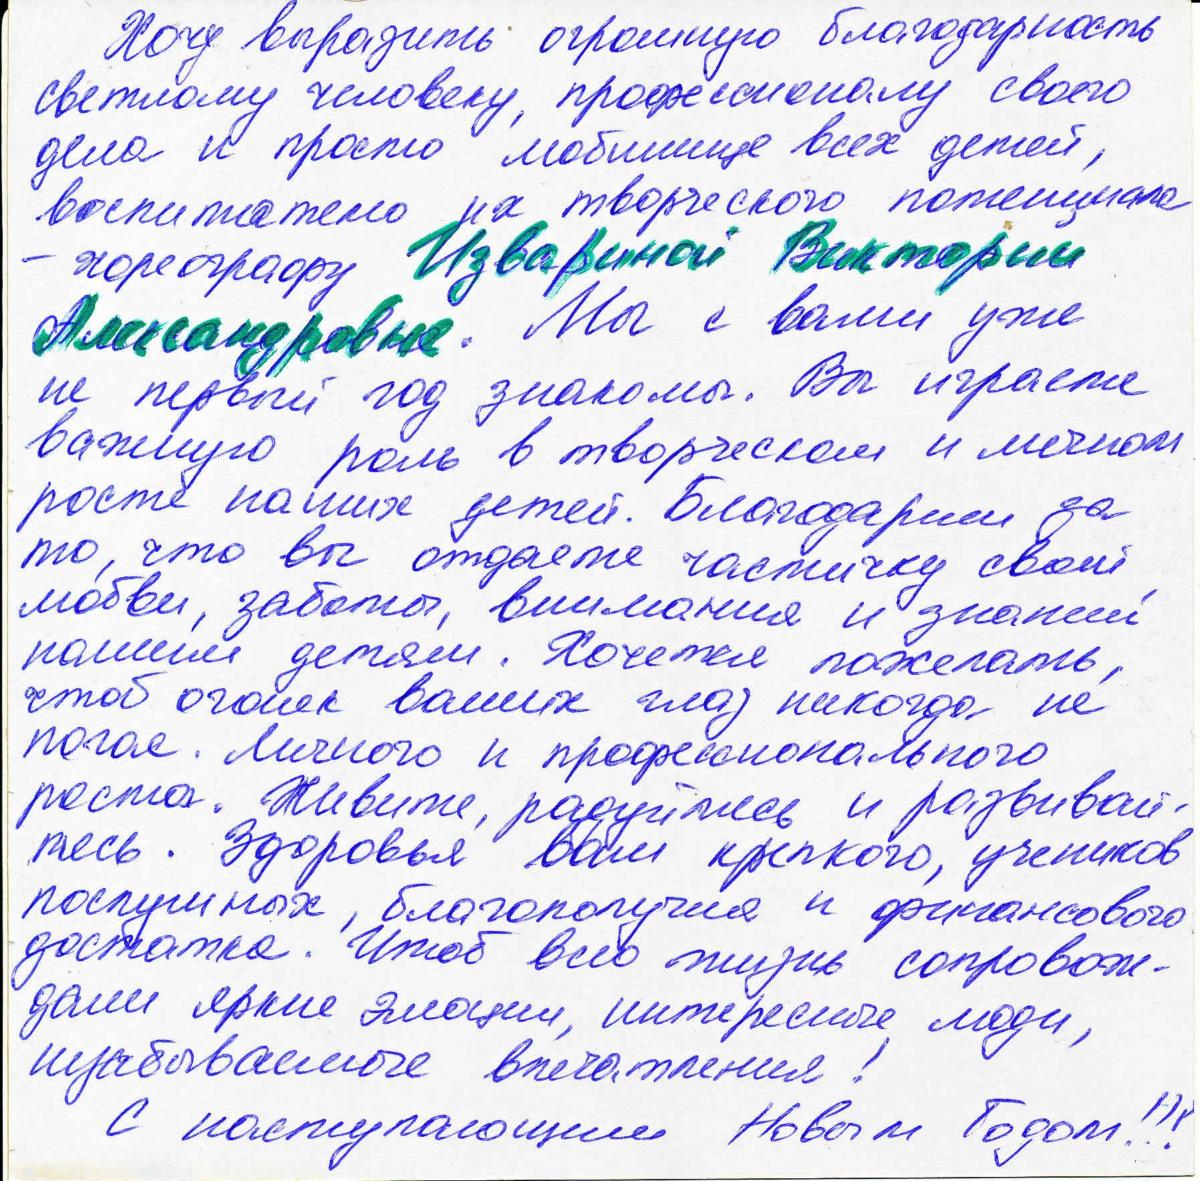 Хочу выразить огромную благодарность
светлому человеку, профессионалу своего
дела и просто любимице всех детей,
воспитателю их творческого потенциала
- хореографу Извариной Виктории
Александровне. Мы с вами уже
не первый год знакомы. Вы играете
важную роль в творческом и личном
росте наших детей. Благодарим за
то, что вы отдаете частичку своей
любви, заботы, внимания и знаний
нашим детям. Хочется пожелать,
чтоб огонек ваших глаз никогда не
погас. Личного и профессионального
роста. Живите, радуйтесь и развивай-
тесь. Здоровья вам крепкого, учеников
послушных, благополучия и финансового
достатка. Чтоб всю жизнь сопровож-
дали яркие эмоции, интересные люди,
незабываемые впечатления!
С наступающим Новым Годом!!!